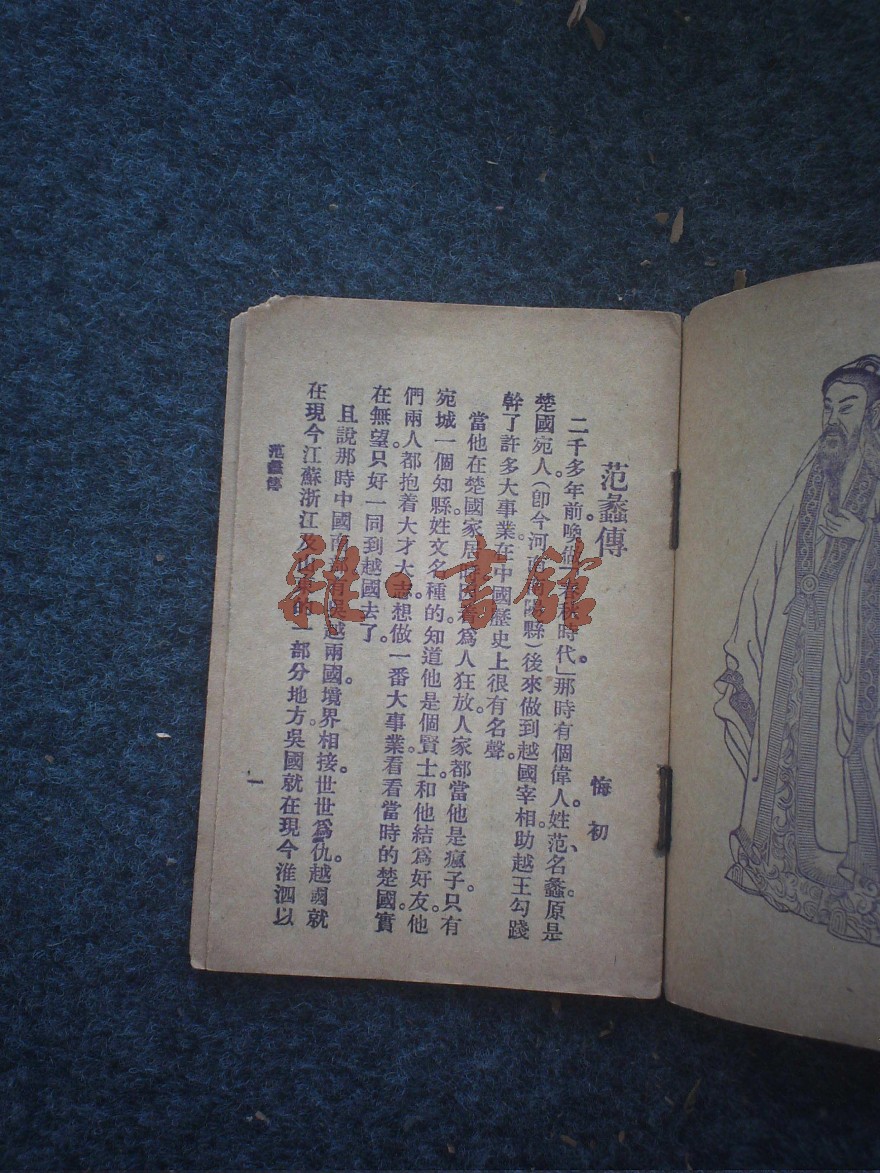 范蠡傳
悔初
二千多年前。喚做「春秋時代」那時有個偉人。姓范、名蠡。原是
楚國宛人。(卽今河南南陽縣)後來做到越國宰相。助越王勾踐
幹了許多大事業。在中國歷史上很有名聲。
當他在楚國家居時。因着爲人狂放。人家都當他是瘋子。只有
宛城一個知縣姓文名種的。知道他是個賢士。和他結爲好友。他
們兩人都抱着大才大志。想做一番大事業。看看當時的楚國。實
在無望。只好一同到越國去了。
且說那時中國南部。有吳越兩國。境界相接。世世爲仇。越國就
在現今江蘇浙江及山東的一部分地方。吳國就在現今淮泗以
范蠡傳
一
雜·書館